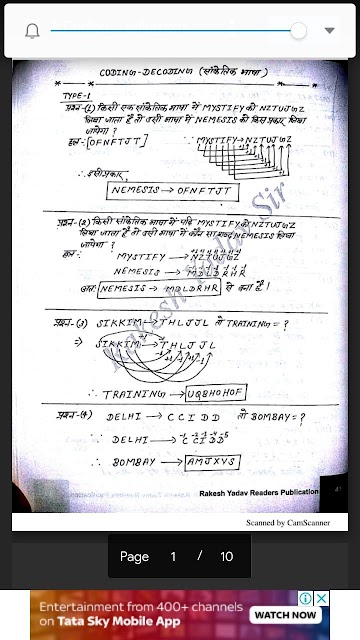 CODING-DECODING (सांकेतिक भाषा)
TYPE-1
प्रश्न-(1) किसी एक सांकेतिक भाषा में MYSTIFY को NZTUJGZ
लिखा जाता है तो उसी भाषा में NEMESIS को किस प्रकार लिखा
जायेगा ?
हल-[OFNFTJT] ∵ MYSTIFY→NZTUJGZ
∴ इसी प्रकार,
NEMESIS → OFNFTJT
प्रश्न-(2) किसी सांकेतिक भाषा में यदि MYSTIFY को NZTUJGZ
लिखा जाता है तो उसी भाषा में कौन सा शब्द NEMESIS लिखा
जायेगा ?
हल- MYSTIFY → NZTUJGZ
NEMESIS → MDLDRHR
अतः NEMESIS → MDLDRHR
प्रश्न-(3) SIKKIM → THLJJL तो TRAINING = ?
⇒) SIKKIM → THLJJL
∴ TRAINING → UQBHOHOF
प्रश्न-(4) DELHI → CCIDD तो BOMBAY = ?
∵ DELHI → CCIDD
∴ BOMBAY → AMJXVS
Rakesh Yadav Sir
Rakesh Yadav Readers Publication
Scanned by CamScanner
Page 1 / 10
Entertainment from 400+ channels
on Tata Sky Mobile App
WATCH NOW